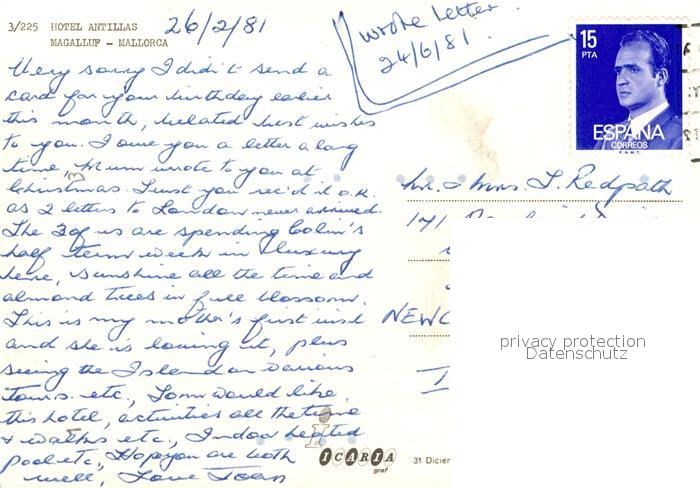 3/225 HOTEL ANTILLAS 26/2/81
MAGALLUF - MALLORCA
Very sorry I didn't send a
card for your birthday earlier
this month, belated best wishes
to you. I owe you a letter a long
time, Mum wrote to you at
Christmas. Trust you rec'd it o.k.
as 2 letters to London never arrived.
The 3 of us are spending Colin's
half term week in luxury
here, sunshine all the time and
almond trees in full blossom.
This is my mother's first visit
and she is loving it, plus
seeing the Island on various
tours. etc., Tom would like
this hotel, activities all the time
& walks etc., Indoor heated
pool etc., Hope you are both
well, Love Joan
wrote letter
24/6/81.
15
PTA
ESPAÑA
CORREOS
F.N.M.T.
Mr. & Mrs T. Redpath
171
NEWC
privacy protection
Datenschutz
ICARIA
graf
31 Dicier